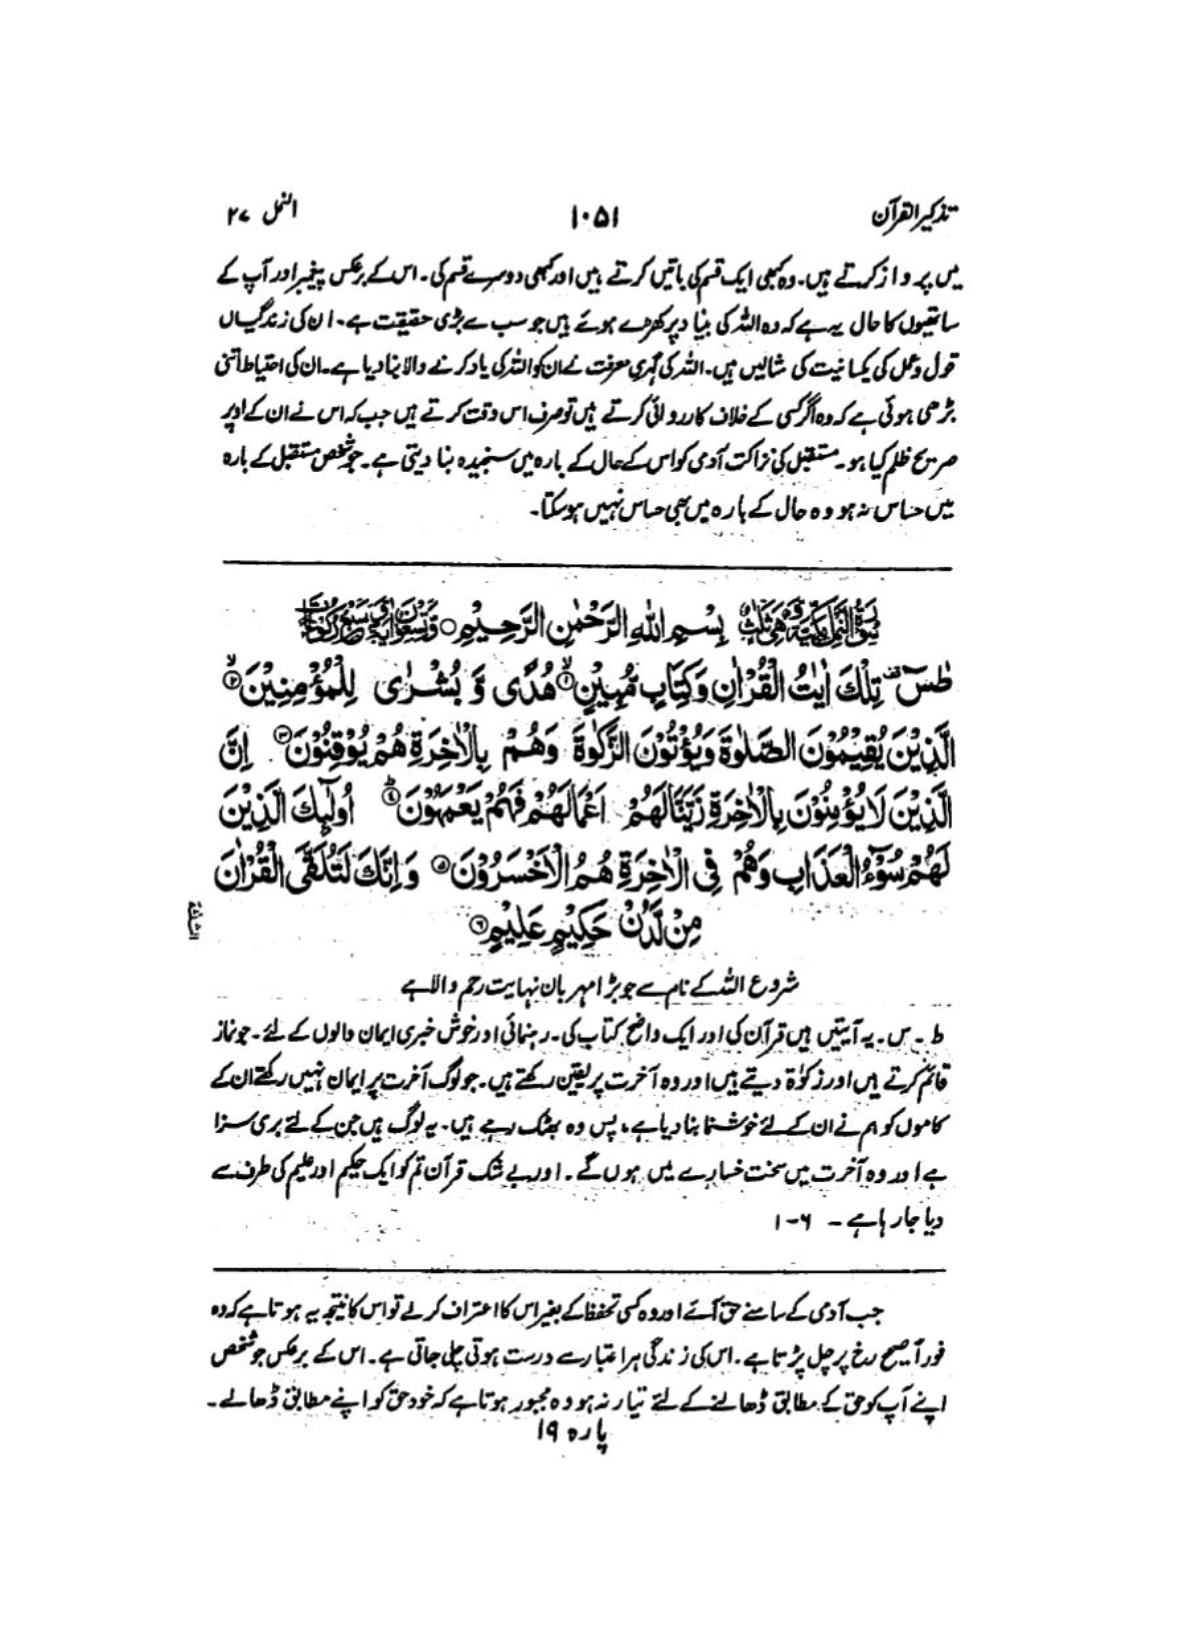 تذکیر القرآن ۱۰۵۱ النمل ۲۷
میں پرواز کرتے ہیں۔ وہ کبھی ایک قسم کی باتیں کرتے ہیں اور کبھی دوسرے قسم کی۔ اس کے برعکس پیغمبر اور آپ کے
ساتھیوں کا حال یہ ہے کہ وہ اللہ کی بنیاد پر کھڑے ہوئے ہیں جو سب سے بڑی حقیقت ہے۔ ان کی زندگیاں
قول و عمل کی یکسانیت کی مثالیں ہیں۔ اللہ کی گہری معرفت نے ان کو اللہ کی یاد کرنے والا بنا دیا ہے۔ ان کی احتیاط اتنی
بڑھی ہوئی ہے کہ وہ اگر کسی کے خلاف کارروائی کرتے ہیں تو صرف اس وقت کرتے ہیں جب کہ اس نے ان کے اوپر
صریح ظلم کیا ہو۔ مستقبل کی نزاکت آدمی کو اس کے حال کے بارہ میں سنجیدہ بنا دیتی ہے۔ جو شخص مستقبل کے بارہ
میں حساس نہ ہو وہ حال کے بارہ میں بھی حساس نہیں ہو سکتا۔
سُوْرَةُ النَّمْلِ مَكِّيَّةٌ وَّهِيَ ثَلٰثٌ بِسْمِ اللهِ الرَّحْمٰنِ الرَّحِيْمِ ○ وَّتِسْعُوْنَ اٰيَةً وَّسَبْعُ رُكُوْعَاتٍ
طٰسٓ تِلْكَ اٰيٰتُ الْقُرْاٰنِ وَكِتَابٍ مُّبِيْنٍ ۙ۱ هُدًى وَّ بُشْرٰى لِلْمُؤْمِنِيْنَ ۙ۲
الَّذِيْنَ يُقِيْمُوْنَ الصَّلٰوةَ وَيُؤْتُوْنَ الزَّكٰوةَ وَهُمْ بِالْاٰخِرَةِ هُمْ يُوْقِنُوْنَ ۳ اِنَّ
الَّذِيْنَ لَا يُؤْمِنُوْنَ بِالْاٰخِرَةِ زَيَّنَّا لَهُمْ اَعْمَالَهُمْ فَهُمْ يَعْمَهُوْنَ ؕ۴ اُولٰٓئِكَ الَّذِيْنَ
لَهُمْ سُوْٓءُ الْعَذَابِ وَهُمْ فِى الْاٰخِرَةِ هُمُ الْاَخْسَرُوْنَ ۵ وَاِنَّكَ لَتُلَقَّى الْقُرْاٰنَ
مِنْ لَّدُنْ حَكِيْمٍ عَلِيْمٍ ۶
شروع اللہ کے نام سے جو بڑا مہربان نہایت رحم والا ہے
ط۔ س۔ یہ آیتیں ہیں قرآن کی اور ایک واضح کتاب کی۔ رہنمائی اور خوش خبری ایمان والوں کے لئے۔ جو نماز
قائم کرتے ہیں اور زکوٰۃ دیتے ہیں اور وہ آخرت پر یقین رکھتے ہیں۔ جو لوگ آخرت پر ایمان نہیں رکھتے ان کے
کاموں کو ہم نے ان کے لئے خوشنما بنا دیا ہے، پس وہ بھٹک رہے ہیں۔ یہ لوگ ہیں جن کے لئے بری سزا
ہے اور وہ آخرت میں سخت خسارے میں ہوں گے۔ اور بے شک قرآن تم کو ایک حکیم اور علیم کی طرف سے
دیا جا رہا ہے۔ ۶-۱
جب آدمی کے سامنے حق آئے اور وہ کسی تحفظ کے بغیر اس کا اعتراف کر لے تو اس کا نتیجہ یہ ہوتا ہے کہ وہ
فوراً صحیح رخ پر چل پڑتا ہے۔ اس کی زندگی ہر اعتبار سے درست ہوتی چلی جاتی ہے۔ اس کے برعکس جو شخص
اپنے آپ کو حق کے مطابق ڈھالنے کے لئے تیار نہ ہو وہ مجبور ہوتا ہے کہ خود حق کو اپنے مطابق ڈھالے۔
پارہ ۱۹